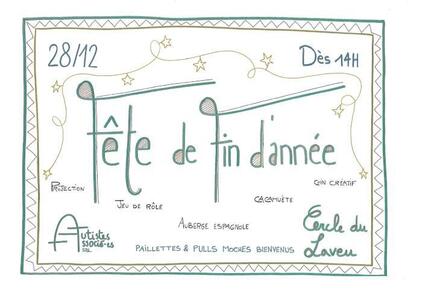 28/12
Dès 14H
Fête de fin d'année
Projection
Jeu de rôle
Auberge espagnole
Cacahuète
Coin créatif
Autistes
Associé·es
Paillettes & pulls moches bienvenus
Cercle du
Laveu